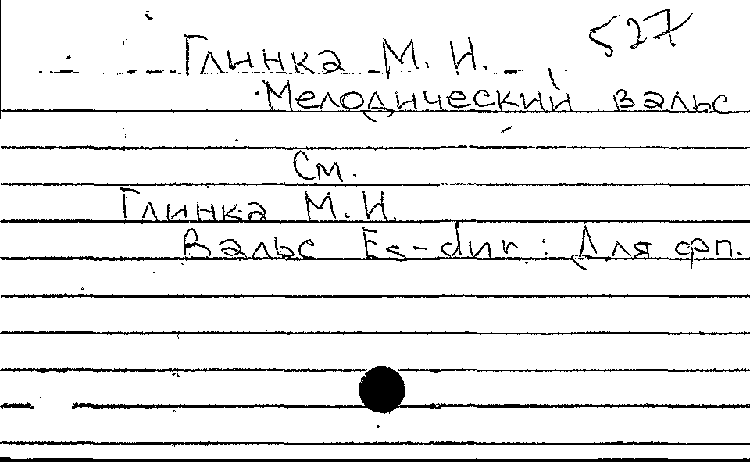 527
Глинка М. И.
Мелодический вальс
См.
Глинка М. И.
Вальс Es-dur: Для фп.